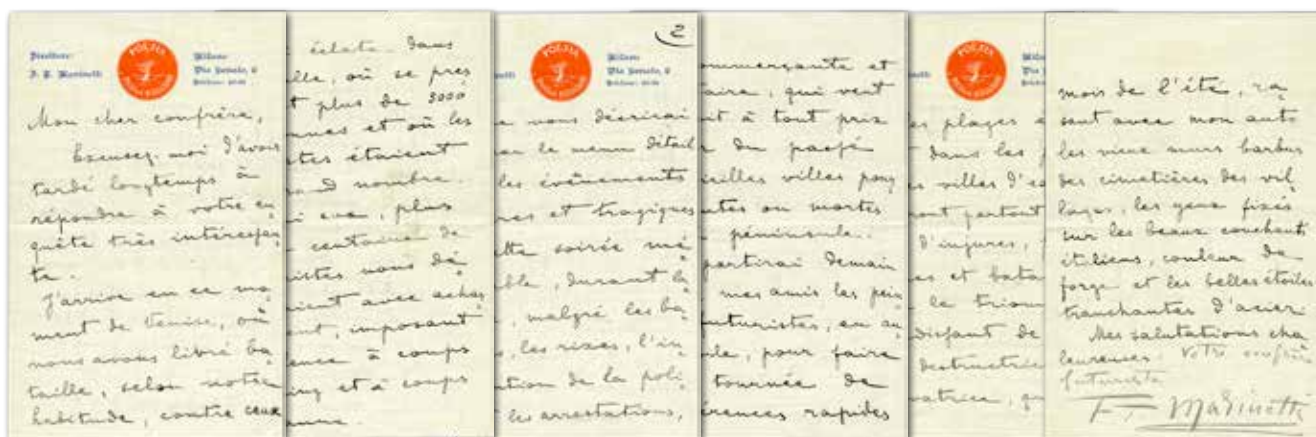 Direttore:
F. T. Marinetti
POESIA
Milano
Via Senato, 2
Mon cher confrère,
Excusez-moi d'avoir
tardé longtemps à
répondre à votre en
quête très intéressan
te.
J'arrive en ce mo
ment de Venise, où
nous avons livré ba
taille, selon notre
habitude, contre ceux
éclata dans
lle, où se pres
t plus de 3000
nnes et où les
tes étaient
and nombre.
i eux, plus
centaine de
istes nous dé
ient avec achar
nt, imposant
ence à coups
ing et à coups
anne.
2
POESIA
Milano
Via Senato, 2
e vous décrirai
le menu détail
les événements
res et tragiques
tte soirée mé
ble, durant la
, malgré les ba
, les rixes, l'in
tion de la poli
les arrestations,
ommerçante et
aire, qui veut
it à tout prix
r du passé
ieilles villes pous
ntes ou mortes
péninsule.
partirai demain
mes amis les pein
futuristes, en au
le, pour faire
tournée de
érences rapides
POESIA
Milano
Via Senato, 2
es plages e
dans les
s villes d'ea
ont partout
d'injures,
es et bata
le triom
disfant de
destructric
vatrice, qu
mois de l'été, ra
sant avec mon auto
les vieux murs barbus
des cimetières des vil
lages, les yeux fixés
sur les beaux couchants
italiens, couleur de
forge et les belles étoiles
tranchantes d'acier.
Mes salutations cha
leureuses. Votre confrère
futuriste
F. T. Marinetti